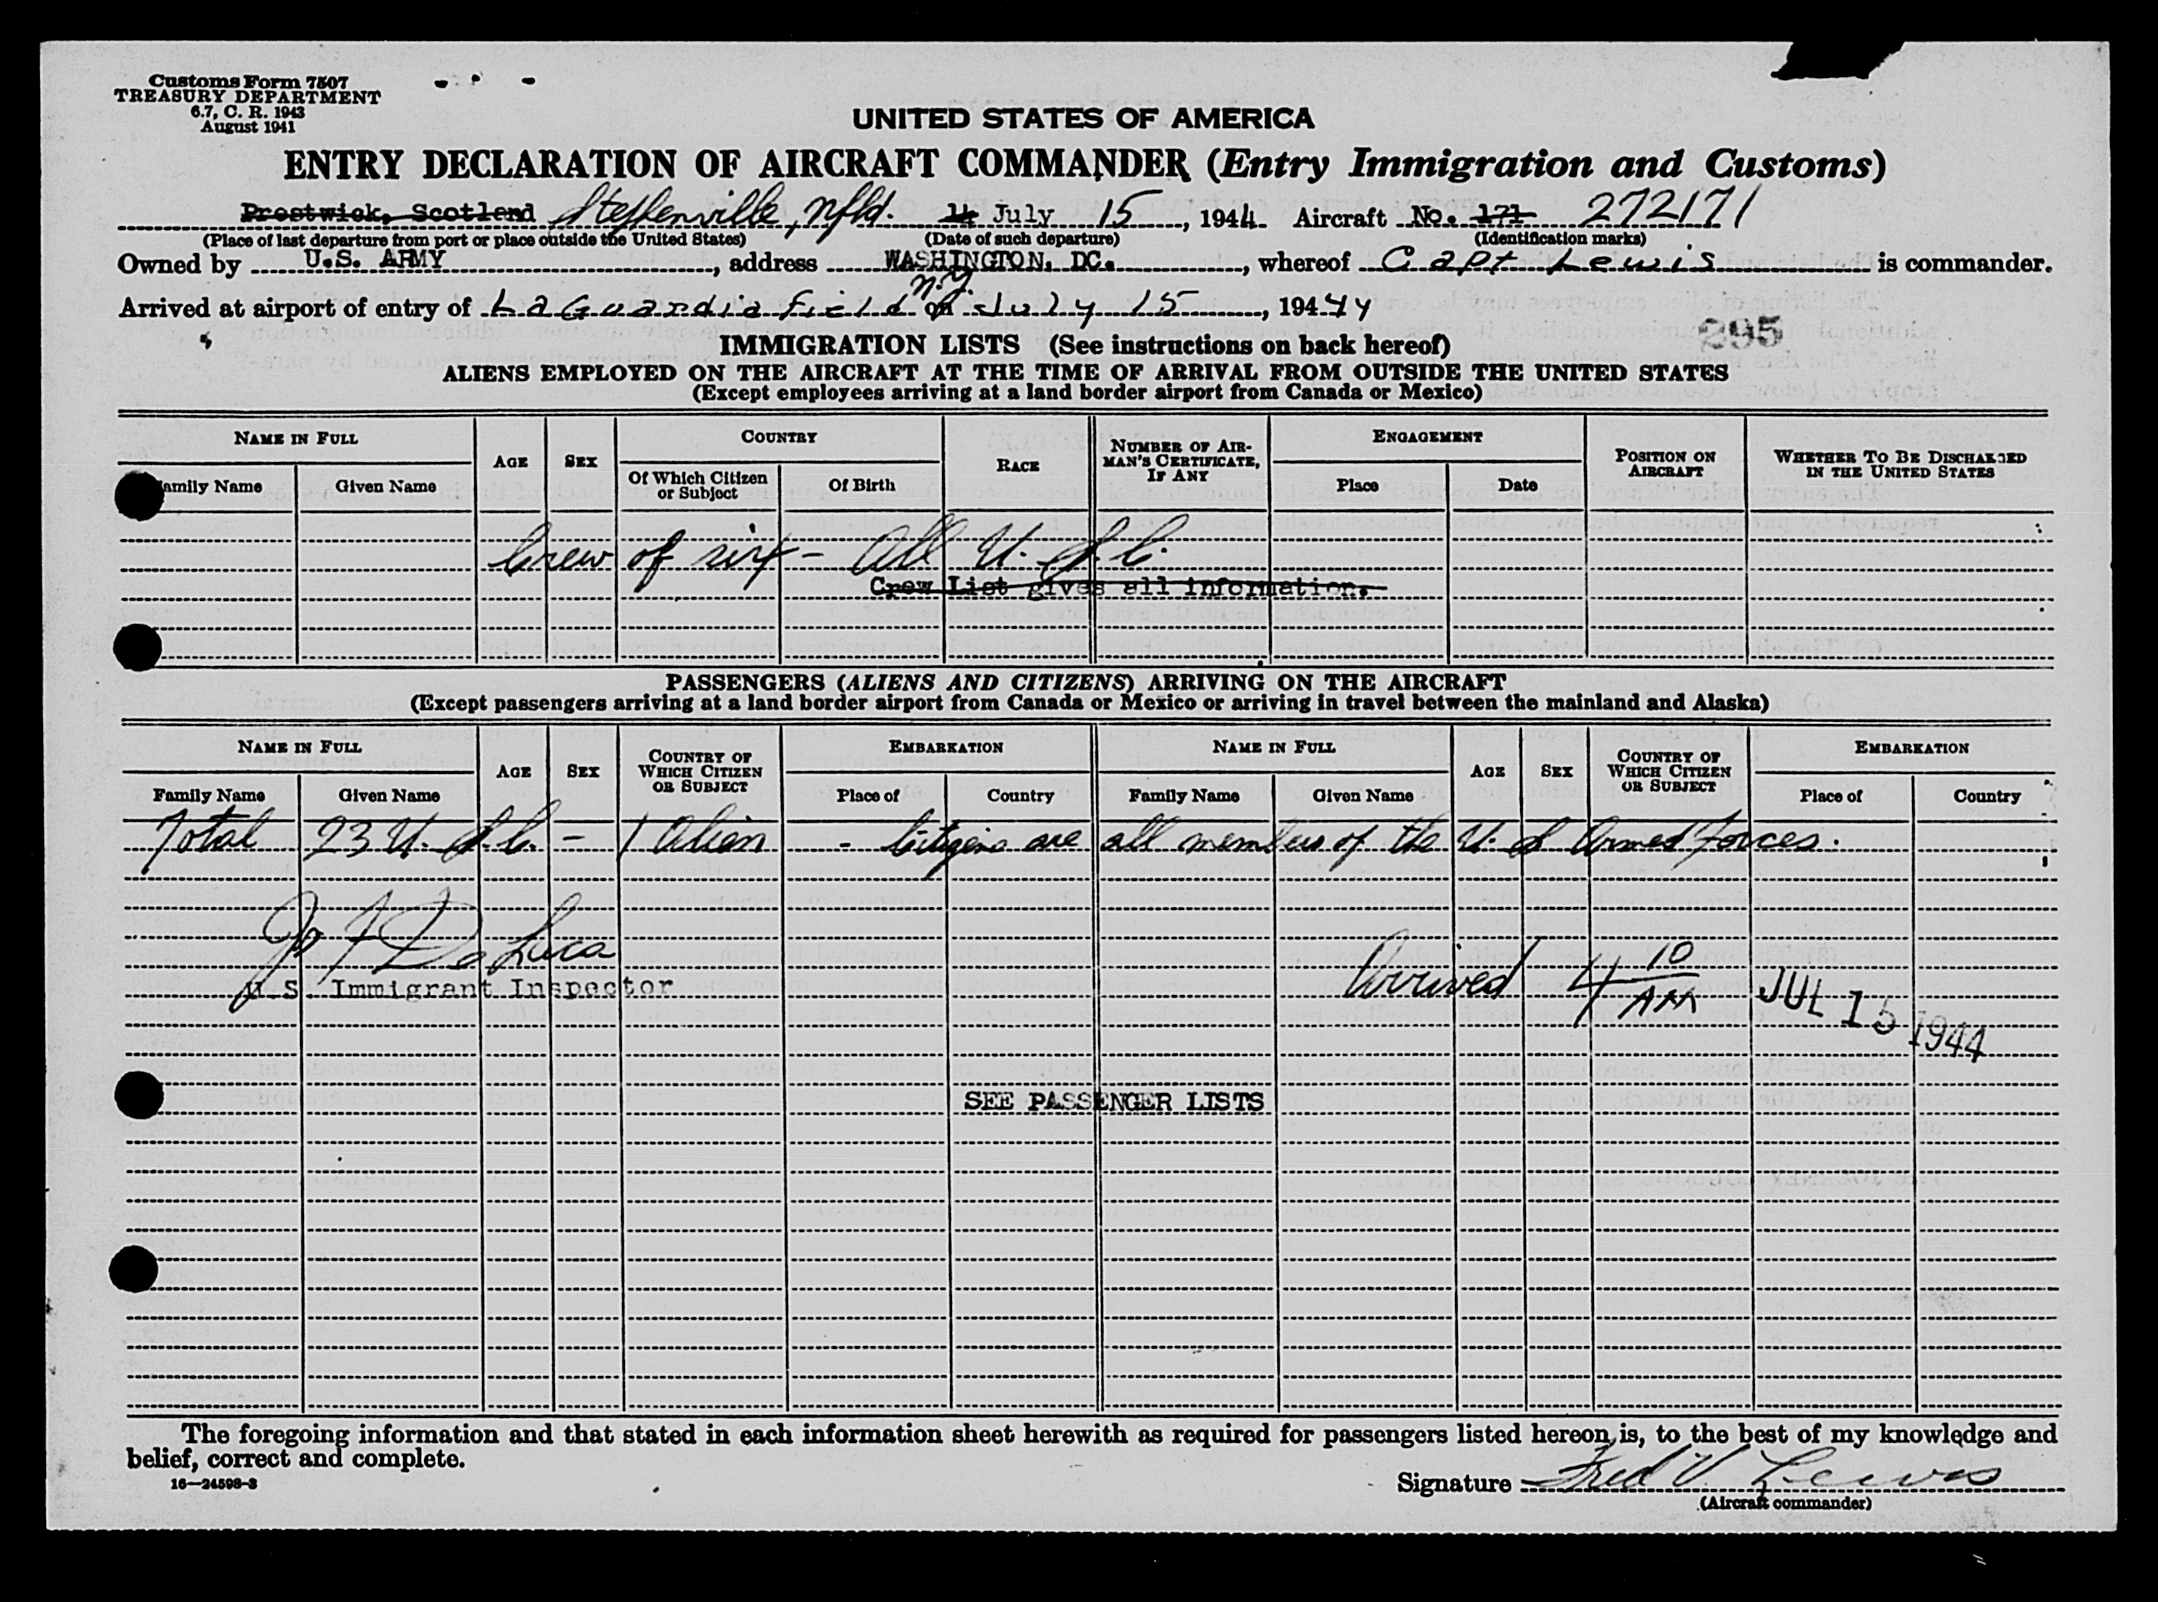 Customs Form 7507
TREASURY DEPARTMENT
6.7, C. R. 1943
August 1941
UNITED STATES OF AMERICA
ENTRY DECLARATION OF AIRCRAFT COMMANDER (Entry Immigration and Customs)
Prestwick, Scotland Stephenville, Nfld. 14 July 15, 1944 Aircraft No. 171 272171
(Place of last departure from port or place outside the United States) (Date of such departure) (Identification marks)
Owned by U.S. ARMY, address WASHINGTON, DC., whereof Capt Lewis is commander.
Arrived at airport of entry of LaGuardia Field N.Y. on July 15, 19444
295
IMMIGRATION LISTS (See instructions on back hereof)
ALIENS EMPLOYED ON THE AIRCRAFT AT THE TIME OF ARRIVAL FROM OUTSIDE THE UNITED STATES
(Except employees arriving at a land border airport from Canada or Mexico)
NAME IN FULL AGE SEX COUNTRY RACE NUMBER OF AIRMAN'S CERTIFICATE, IF ANY ENGAGEMENT POSITION ON AIRCRAFT WHETHER TO BE DISCHARGED IN THE UNITED STATES
Family Name Given Name Of Which Citizen or Subject Of Birth Place Date
Crew of six - All U.S.C.
Crew List gives all information.
PASSENGERS (ALIENS AND CITIZENS) ARRIVING ON THE AIRCRAFT
(Except passengers arriving at a land border airport from Canada or Mexico or arriving in travel between the mainland and Alaska)
NAME IN FULL AGE SEX COUNTRY OF WHICH CITIZEN OR SUBJECT EMBARKATION NAME IN FULL AGE SEX COUNTRY OF WHICH CITIZEN OR SUBJECT EMBARKATION
Family Name Given Name Place of Country Family Name Given Name Place of Country
Total 23 U.S.C. - 1 Alien - Citizens are all members of the U.S. Armed Forces.
De Luca
U.S. Immigrant Inspector
Arrived 4 10 AM JUL 15 1944
SEE PASSENGER LISTS
The foregoing information and that stated in each information sheet herewith as required for passengers listed hereon, is, to the best of my knowledge and
belief, correct and complete.
16—24598-3
Signature Fred V Lewis
(Aircraft commander)